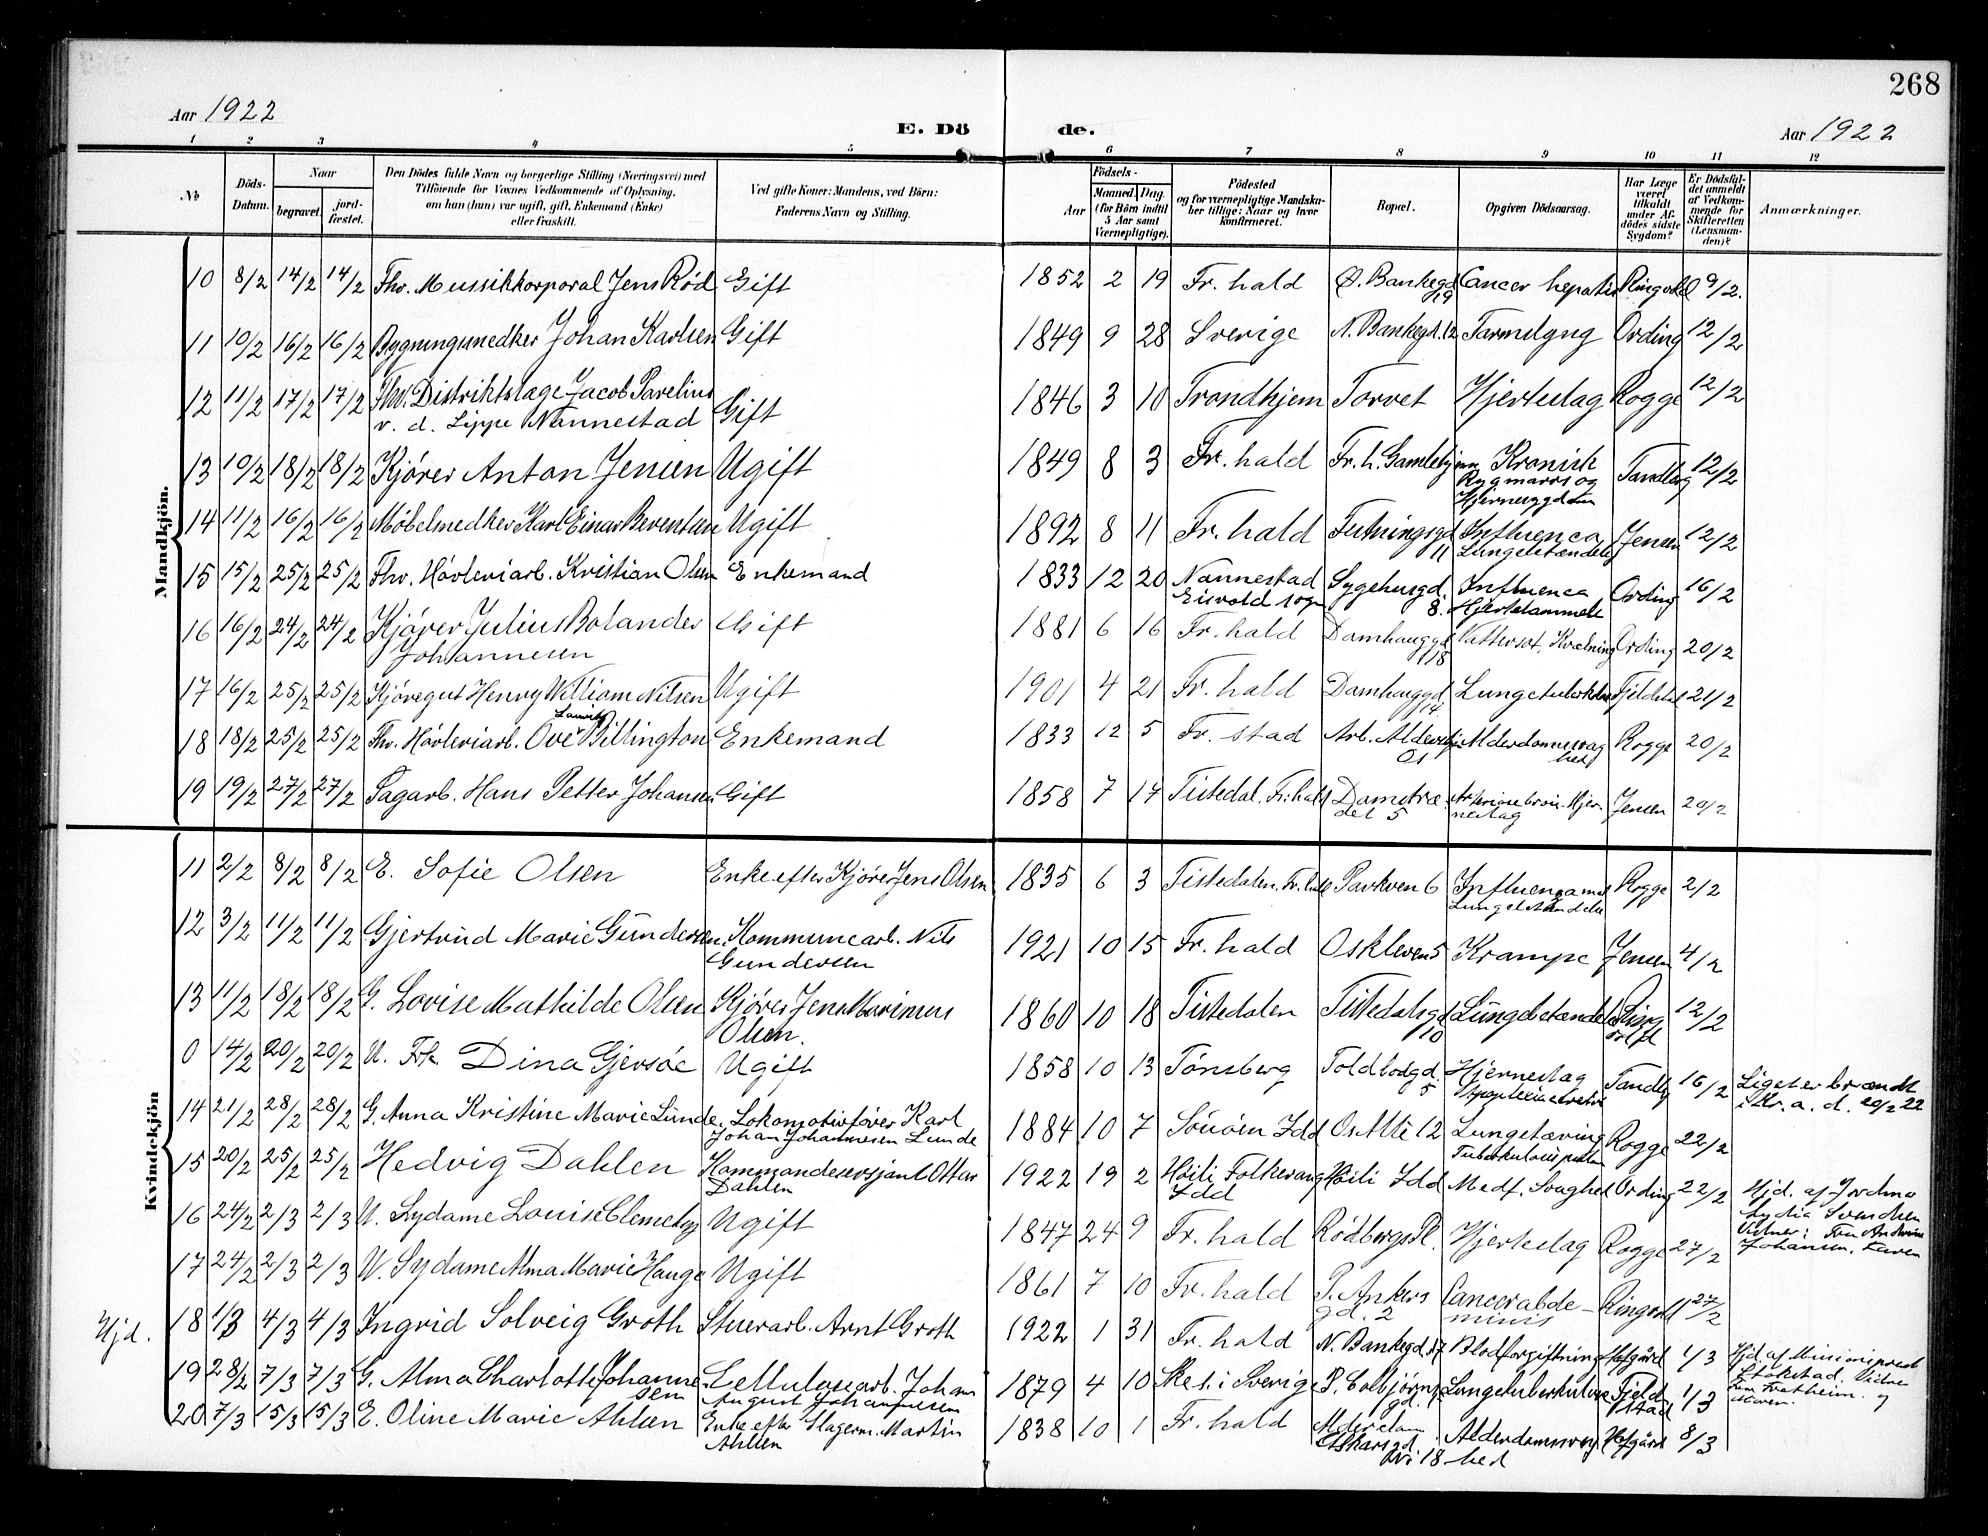 268
Aar 1922
E. Dö de.
Aar 1922
1 2 3 4 5 6 7 8 9 10 11 12
No
Döds-Datum.
Naar
begravet.
jord-fæstet.
Den Dödes fulde Navn og borgerlige Stilling (Næringsvei) med
Tilföiende for Voxnes Vedkommende af Oplysning,
om han (hun) var ugift, gift, Enkemand (Enke)
eller fraskilt.
Ved gifte Koner: Mandens, ved Börn:
Faderens Navn og Stilling.
Födsels-
Aar
Maaned. Dag.
(for Börn indtil
5 Aar samt
Værnepligtige).
Födested
og for værnepligtige Mandska-
ber tillige: Naar og hvor
konfirmeret.
Bopæl.
Opgiven Dödsaarsag.
Har Læge
været
tilkaldt
under Af-
dödes sidste
Sygdom?
Er Dödsfal-
det anmeldt
af Vedkom-
mende for
Skifteretten
(Lensman-
den)?
Anmærkninger.
Mandkjön.
10 8/2 14/2 14/2 Fhv. Mussikkorporal Jens Rød Gift 1852 2 19 Fr. hald Ø. Bankegd 19 Cancer hepatis Ringvold 9/2.
11 10/2 16/2 16/2 Bygningsnedker Johan Karlsen Gift 1849 9 28 Sverige N. Bankegd. 12 Tarmslyng Ording 12/2
12 11/2 17/2 17/2 Fhv. Distriktslæge Jacob Pavelius
v. d. Lippe Nannestad Gift 1846 3 10 Trondhjem Torvet Hjerteslag Rogge 12/2
13 10/2 18/2 18/2 Kjører Anton Jensen Ugift 1849 8 3 Fr. hald Fr. h. Gamlehjem Kronisk
Rygmarvs og
Hjernesygdom Tandberg 12/2
14 11/2 16/2 16/2 Møbelsnedker Karl Einar Berentsen Ugift 1892 8 11 Fr. hald Festningsgd 11 Influenca
Lungebetændelse Jensen 12/2
15 15/2 25/2 25/2 Fhv. Høvleriarb. Kristian Olsen Enkemand 1833 12 20 Nannestad
Eisvold sogn Sygehusgd. 8. Influenca
Hjertelammelse Ording 16/2
16 16/2 24/2 24/2 Kjører Julius Bolander
Johannesen Gift 1881 6 16 Fr. hald Damhauggd 18 Vattersot, Kvælning Ording 20/2
17 16/2 25/2 25/2 Kjøregut Henry William Nilsen Ugift 1901 4 21 Fr. hald Damhauggd 14. Lungetuberkulose Fjeldstad 21/2
18 18/2 25/2 25/2 Fhv. Høvleriarb. Ove Lauritz Billington Enkemand 1833 12 5 Fr. stad Arb. Aldershj. Os Alderdomssvaghed Rogge 20/2
19 19/2 27/2 27/2 Sagarb. Hans Petter Johansen Gift 1858 7 17 Tistedal. Fr. hald Damstræ-
det 5 Hjer-
neslag Jensen 20/2
Kvindekjön
11 2/2 8/2 8/2 E. Sofie Olsen Enke efter Kjører Jens Olsen 1835 6 3 Tistedalen. Fr. hald Parkven 6 Influenca med
Lungebetændelse Rogge 2/2
12 3/2 11/2 11/2 Gjertrud Marie Gundersen. Kommunearb. Nils
Gundersen 1921 10 15 Fr. hald Oskleven 5 Krampe Jensen 4/2
13 11/2 18/2 18/2 G. Lovise Mathilde Olsen Kjører Jens Marinius
Olsen. 1860 10 18 Tistedalen Tistedalsgd 10 Lungebetændelse Ringvold 12/2
0 14/2 20/2 20/2 U. Frk. Dina Gjersøe Ugift 1858 10 13 Tønsberg Toldbodgd. 5 Hjerneslag
Apoplexia cerebri Tandbg 16/2 Liget er brændt
i Kr. a. d. 20/2 22
14 21/2 28/2 28/2 G. Anna Kristine Marie Lunde. Lokomotivfører Karl
Johan Johannesen Lunde 1884 10 7 Souøen Idd Os Alle 12 Lungetæring
Tuberkulosis pulm Rogge 22/2
15 20/2 25/2 25/2 Hedvig Dahlen Kommandersersjant Ottar
Dahlen 1922 19 2 Høili Folkevang
Idd Høili Idd Medf. Svaghed Ording 22/2 Hjd. af Jordmo
Lydia Svendsen
Vidner: Fru Andrine
Johansen, Faren
16 24/2 2/3 2/3 U. Sydame Louise Clementz Ugift 1847 24 9 Fr. hald Rødbergs Pl. Hjerteslag Rogge 27/2
17 24/2 2/3 2/3 U. Sydame Alma Marie Hauge Ugift 1861 7 10 Fr. hald P. Ankers
gd. 2 Cancer abdo-
minis Ringvold 27/2
Hjd. 18 1/3 4/3 4/3 Ingrid Solveig Groth Stuerarb. Arnt Groth 1922 1 31 Fr. hald N. Bankegd. 17 Blodforgiftning Hofgård 1/3 Hjd. af Misionsprest
Stokstad. Vidne
Fru Fretheim. og
Faren.
19 28/2 7/3 7/3 G. Alma Charlotte Johanne-
sen Cellulosearb. Johan
August Johannesen 1879 4 10 Skee i Sverige P. Colbjørns
gd. Lungetuberkulose Fjeld-
stad 1/3
20 7/3 15/3 15/3 E. Oline Marie Ahlsen Enke efter Slagerm. Martin
Ahlsen 1838 10 1 Fr. hald Oskarsgd. 18 Alderdomssvag-
hed Hofgård 8/3